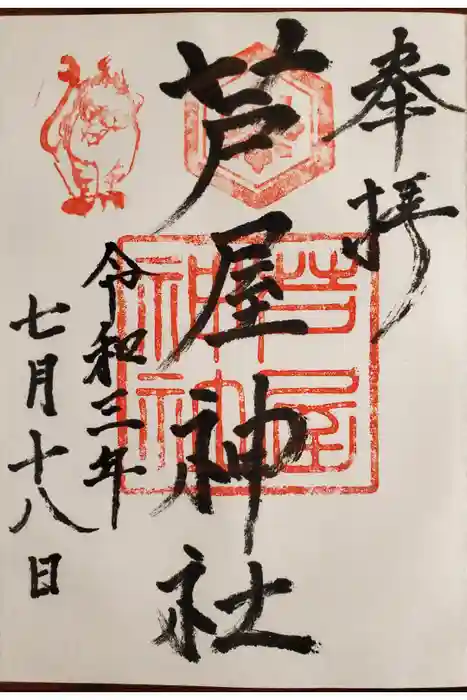 奉拝
芦屋神社
芦屋
神社
令和三年
七月十八日